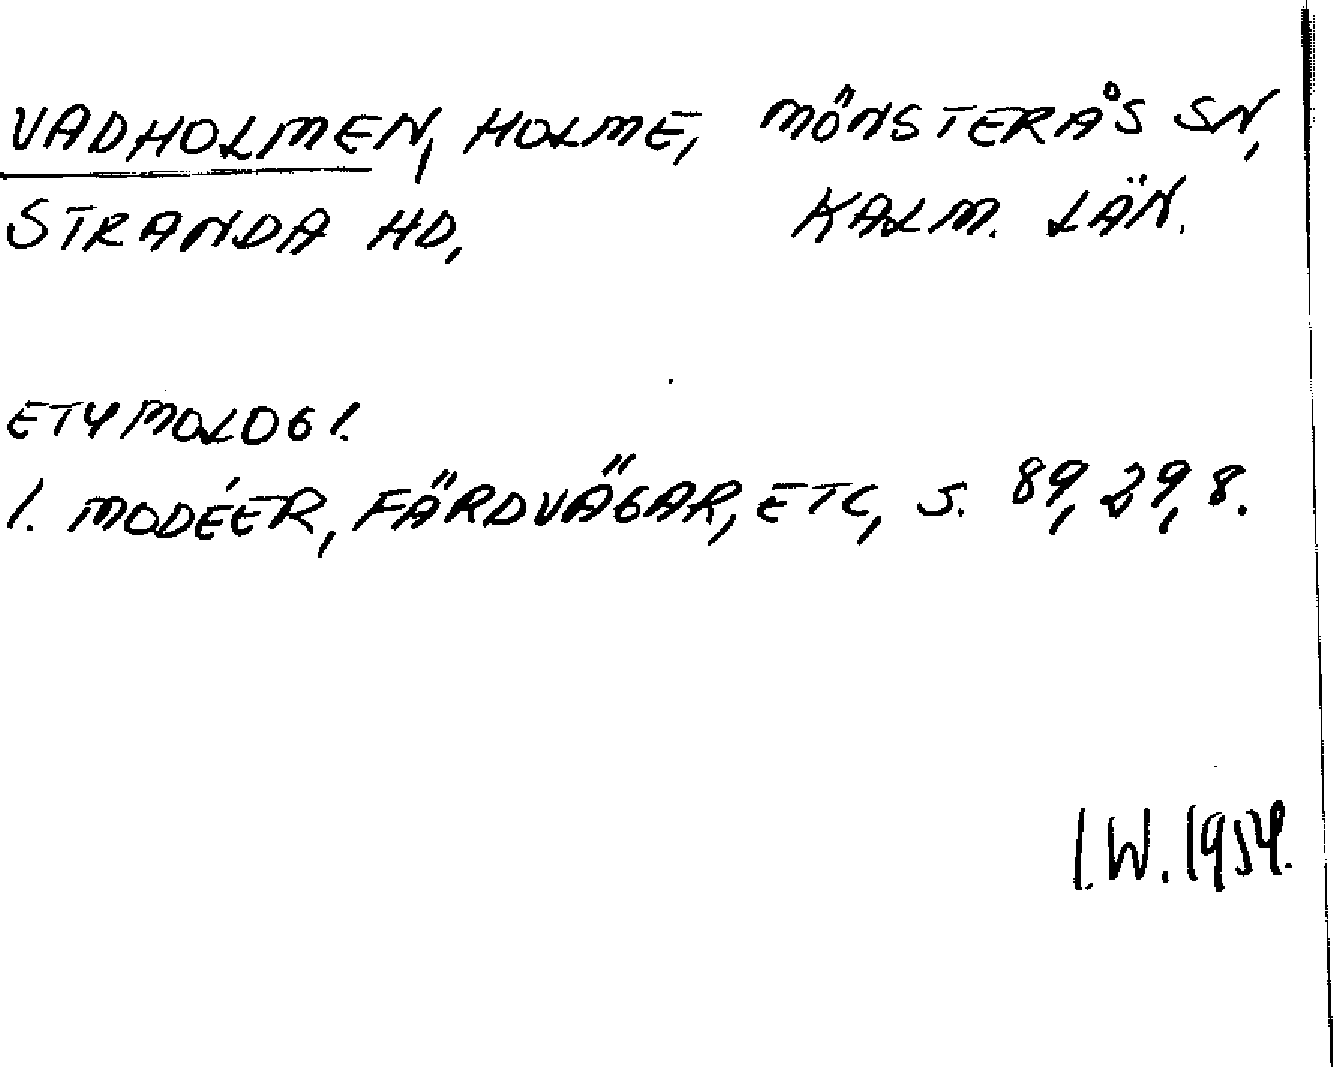 VADHOLMEN, HOLME, MÖNSTERÅS SN,
STRANDA HD, KALM. LÄN.
ETYMOLOGI.
1. MODÉER, FÄRDVÄGAR, ETC, S. 89, 29, 8.
I.W. 1954.